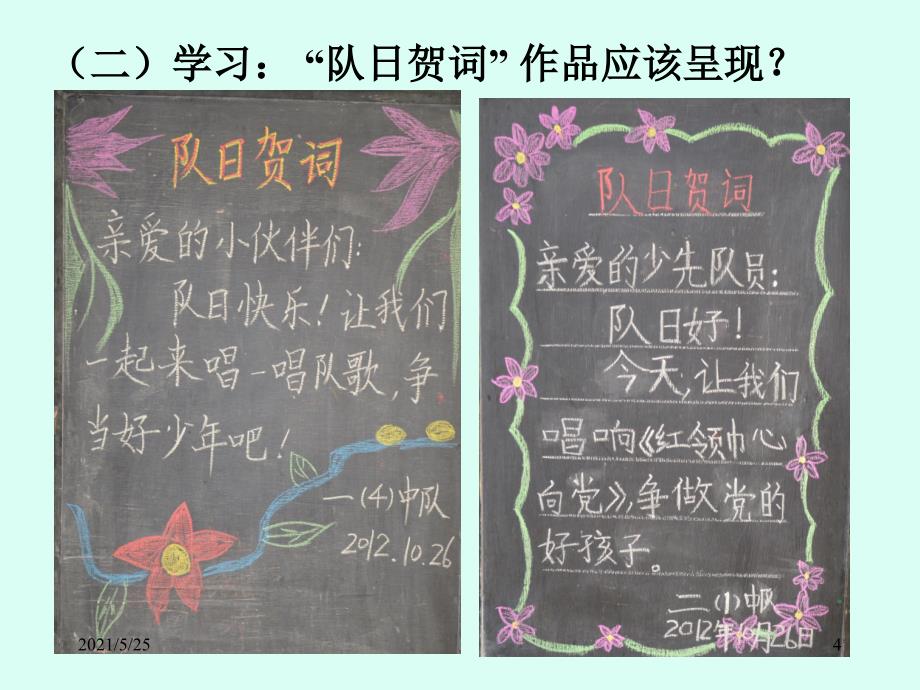 （二）学习： “队日贺词” 作品应该呈现？
队日贺词
亲爱的小伙伴们：
队日快乐！让我们
一起来唱一唱队歌，争
当好少年吧！
一（4）中队
2012.10.26
2021/5/25
队日贺词
亲爱的少先队员：
队日好！
今天，让我们
唱响《红领巾心
向党》，争做党的
好孩子。
二（1）中队
2012年10月26日
4